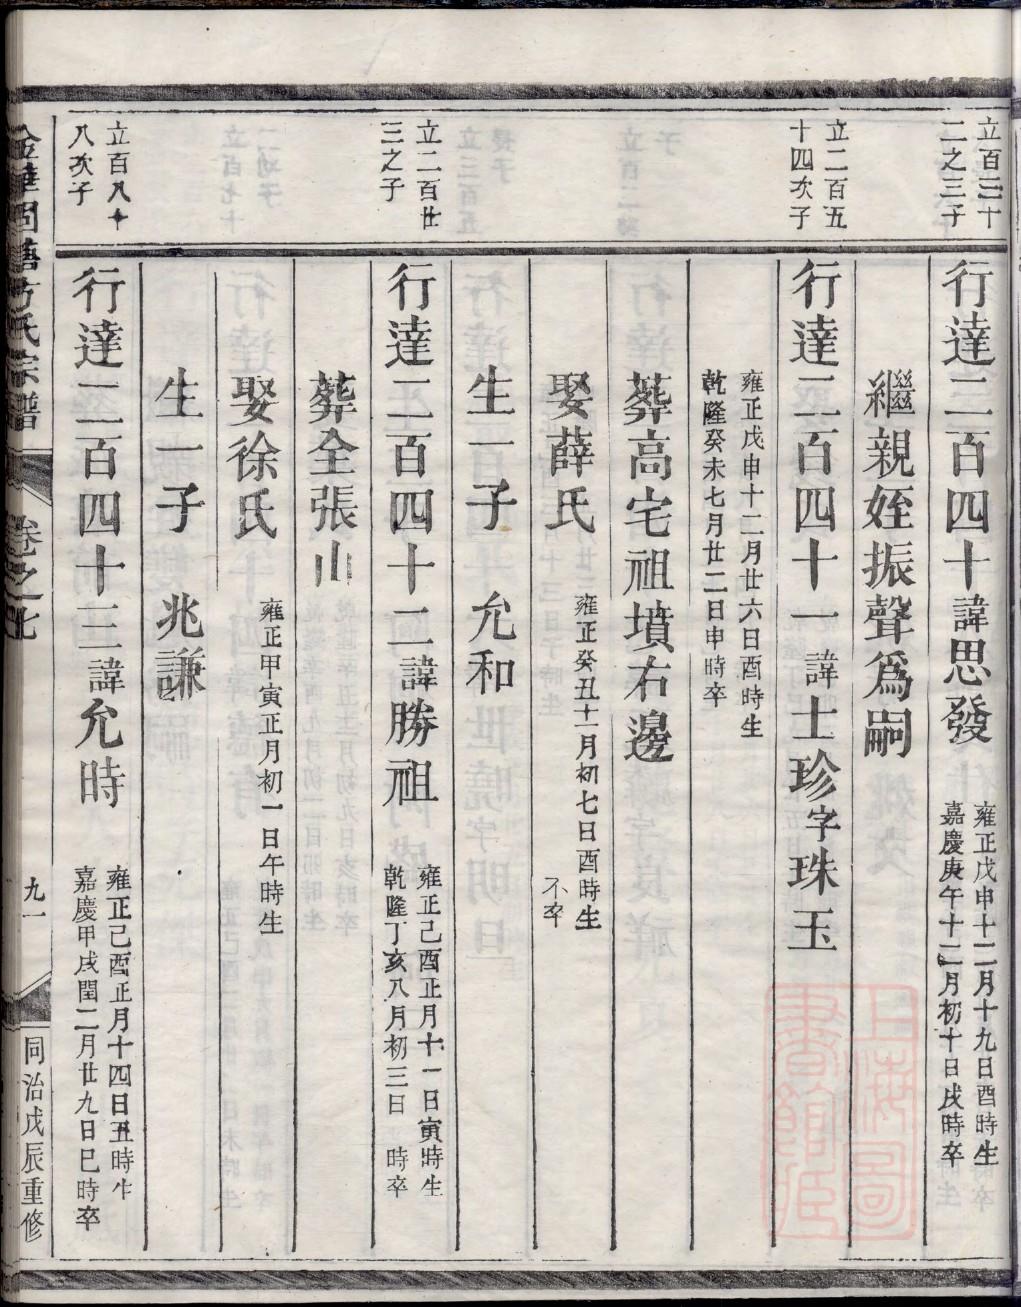 立百三十
二之三子
行達二百四十諱思發
雍正戊申十二月十九日酉時生
嘉慶庚午十二月初十日戌時卒
繼親姪振聲爲嗣
立二百五
十四次子
行達二百四十一諱士珍字珠玉
雍正戊申十二月廿六日酉時生
乾隆癸未七月廿二日申時卒
葬高宅祖墳右邊
娶薛氏
雍正癸丑十一月初七日酉時生
不卒
生一子 允和
立二百廿
三之子
行達二百四十二諱勝祖
雍正己酉正月十一日寅時生
乾隆丁亥八月初三日 時卒
葬全張山
娶徐氏
雍正甲寅正月初一日午時生
生一子 兆謙
立百八十
八次子
行達二百四十三諱允時
雍正己酉正月十四日丑時生
嘉慶甲戌閏二月廿九日巳時卒
金華 方氏宗譜
卷之七
九一
同治戊辰重修
上海圖書館藏